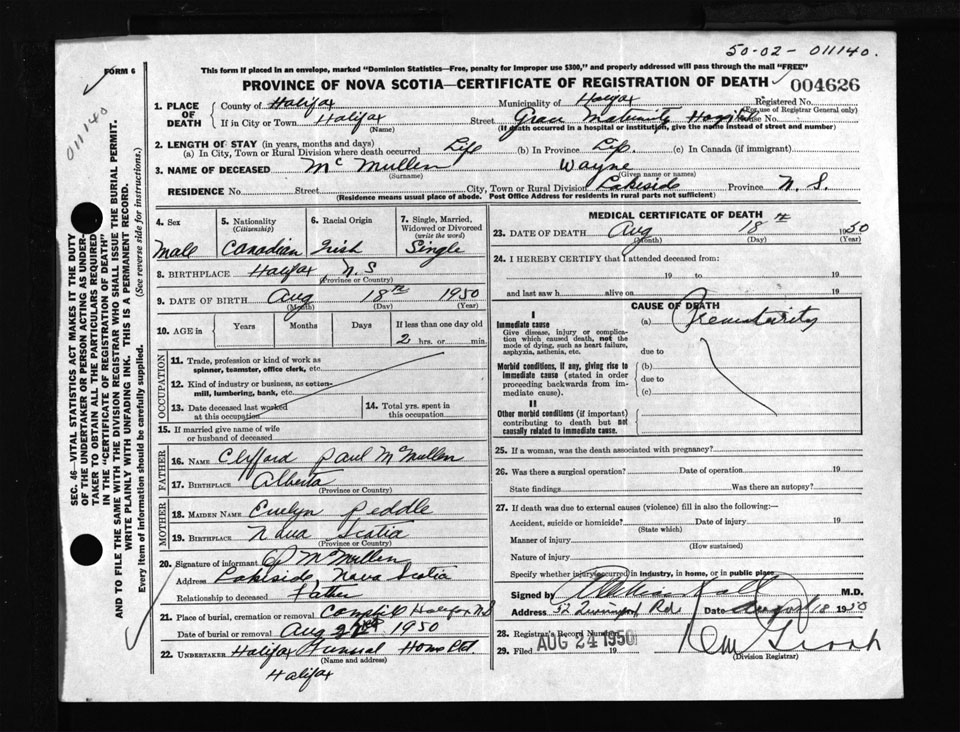 50-02- 011140.
FORM 6
This form if placed in an envelope, marked "Dominion Statistics—Free, penalty for improper use $300," and properly addressed will pass through the mail "FREE"
PROVINCE OF NOVA SCOTIA—CERTIFICATE OF REGISTRATION OF DEATH
004626
011140
SEC. 46—VITAL STATISTICS ACT MAKES IT THE DUTY
OF THE UNDERTAKER OR PERSON ACTING AS UNDER-
TAKER TO OBTAIN ALL THE PARTICULARS REQUIRED
IN THE "CERTIFICATE OF REGISTRATION OF DEATH"
AND TO FILE THE SAME WITH THE DIVISION REGISTRAR WHO SHALL ISSUE THE BURIAL PERMIT.
WRITE PLAINLY WITH UNFADING INK. THIS IS A PERMANENT RECORD.
Every item of Information should be carefully supplied. (See reverse side for instructions.)
1. PLACE OF DEATH
County of Halifax Municipality of Halifax Registered No.
(For use of Registrar General only)
If in City or Town Halifax Street Grace Maternity Hospital
(Name) (If death occurred in a hospital or institution, give the name instead of street and number)
2. LENGTH OF STAY (in years, months and days)
(a) In City, Town or Rural Division where death occurred Life (b) In Province Life. (c) In Canada (if immigrant)
3. NAME OF DECEASED McMullen Wayne
(Surname) (Given name or names)
RESIDENCE No. Street City, Town or Rural Division Lakeside Province N. S.
(Residence means usual place of abode. Post Office Address for residents in rural parts not sufficient)
4. Sex
Male
5. Nationality
(Citizenship)
Canadian
6. Racial Origin
Irish
7. Single, Married,
Widowed or Divorced
(write the word)
Single
8. BIRTHPLACE Halifax N. S
(Province or Country)
9. DATE OF BIRTH Aug 18th 1950
(Month) (Day) (Year)
10. AGE in Years Months Days If less than one day old
2 hrs. or min.
OCCUPATION
11. Trade, profession or kind of work as
spinner, teamster, office clerk, etc.
12. Kind of industry or business, as cotton-
mill, lumbering, bank, etc.
13. Date deceased last worked
at this occupation
14. Total yrs. spent in
this occupation
15. If married give name of wife
or husband of deceased
FATHER
16. NAME Clifford Paul McMullen
17. BIRTHPLACE Alberta
(Province or Country)
MOTHER
18. MAIDEN NAME Evelyn Peddle
19. BIRTHPLACE Nova Scotia
(Province or Country)
20. Signature of informant McMullen
Address Lakeside, Nova Scotia
Relationship to deceased Father
21. Place of burial, cremation or removal Halifax N.S
Date of burial or removal Aug 1950
22. UNDERTAKER Halifax Funeral Home Ltd.
(Name and address)
Halifax
MEDICAL CERTIFICATE OF DEATH
23. DATE OF DEATH Aug 18th 1950
(Month) (Day) (Year)
24. I HEREBY CERTIFY that I attended deceased from:
19 to 19
and last saw h alive on 19
CAUSE OF DEATH
I
Immediate cause
Give disease, injury or complica-
tion which caused death, not the
mode of dying, such as heart failure,
asphyxia, asthenia, etc.
(a) Prematurity
due to
Morbid conditions, if any, giving rise to
immediate cause (stated in order
proceeding backwards from im-
mediate cause).
(b)
due to
(c)
II
Other morbid conditions (if important)
contributing to death but not
causally related to immediate cause.
25. If a woman, was the death associated with pregnancy?
26. Was there a surgical operation? Date of operation 19
State findings Was there an autopsy?
27. If death was due to external causes (violence) fill in also the following:—
Accident, suicide or homicide? Date of injury 19
(State which)
Manner of injury
(How sustained)
Nature of injury
Specify whether injury occurred in industry, in home, or in public place
Signed by M.D.
Address 52 Rd Date Aug 18 1950
28. Registrar's Record Number
29. Filed AUG 24 1950 19
(Division Registrar)